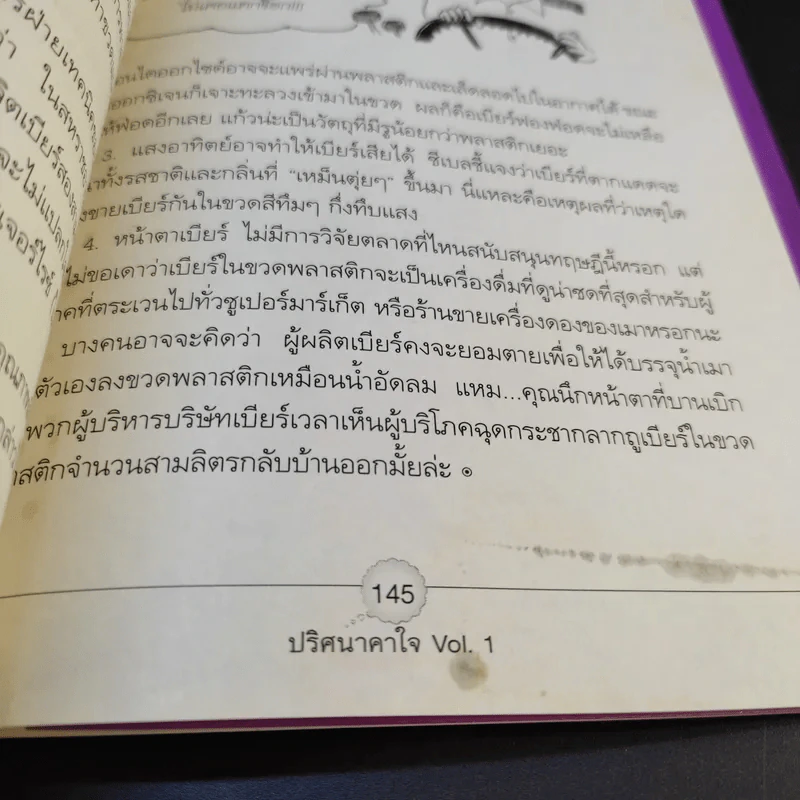 รฝ่ายเทคนิค
ว่า ในสหรา
ลิตเบียร์สอง
จะไม่แปลก
เจอร์ไรซ์
คุณภา
อนไดออกไซด์อาจจะแพร่ผ่านพลาสติกและเล็ดลอดไปในอากาศได้ ขณะ
ออกซิเจนก็เจาะทะลวงเข้ามาในขวด ผลก็คือเบียร์ฟองฟอดจะไม่เหลือ
ห้ฟอดอีกเลย แก้วน่ะเป็นวัตถุที่มีรูน้อยกว่าพลาสติกเยอะ
3. แสงอาทิตย์อาจทำให้เบียร์เสียได้ ซีเบลชี้แจงว่าเบียร์ที่ตากแดดจะ
าทั้งรสชาติและกลิ่นที่ "เหม็นตุ่ยๆ" ขึ้นมา นี่แหละคือเหตุผลที่ว่าเหตุใด
งขายเบียร์กันในขวดสีทึมๆ กึ่งทึบแสง
4. หน้าตาเบียร์ ไม่มีการวิจัยตลาดที่ไหนสนับสนุนทฤษฎีนี้หรอก แต่
ไม่ขอเดาว่าเบียร์ในขวดพลาสติกจะเป็นเครื่องดื่มที่ดูน่าซดที่สุดสำหรับผู้
าคที่ตระเวนไปทั่วซูเปอร์มาร์เก็ต หรือร้านขายเครื่องดองของเมาหรอกนะ
บางคนอาจจะคิดว่า ผู้ผลิตเบียร์คงจะยอมตายเพื่อให้ได้บรรจุน้ำเมา
ตัวเองลงขวดพลาสติกเหมือนน้ำอัดลม แหม...คุณนึกหน้าตาที่บานเบิก
พวกผู้บริหารบริษัทเบียร์เวลาเห็นผู้บริโภคฉุดกระชากลากถูเบียร์ในขวด
าสติกจำนวนสามลิตรกลับบ้านออกมั้ยล่ะ ๑
145
ปริศนาคาใจ Vol. 1